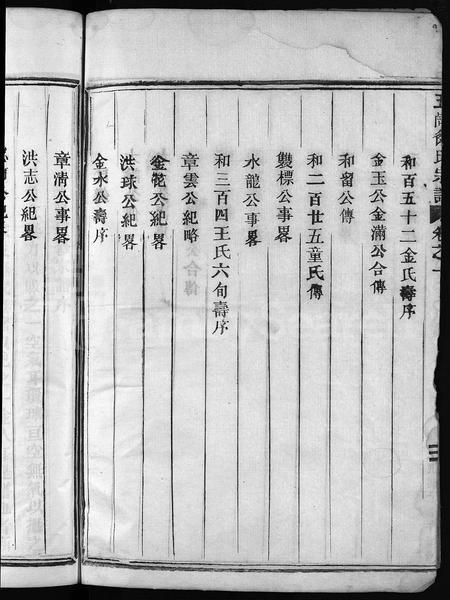 和百五十二金氏壽序
金玉公金滿公合傳
和留公傳
和二百廿五童氏傳
雙標公事畧
水龍公事畧
和三百四王氏六旬壽序
章雲公紀略
金乾公紀畧
洪球公紀畧
金水公壽序
章清公事畧
洪志公紀畧